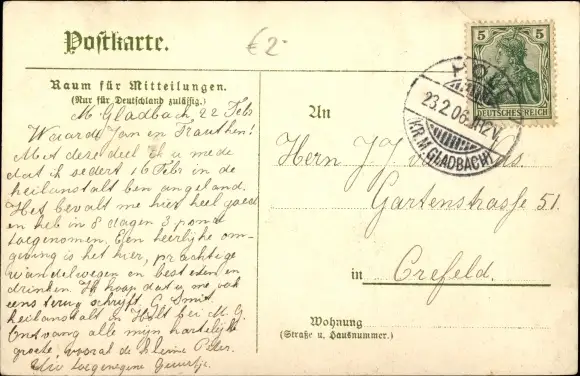 Postkarte.
€2-
Raum für Mitteilungen.
(Nur für Deutschland zulässig.)
M. Gladbach 22 Febr
Waarde Jan en Trauthen!
Met deze deel ik u mede
dat ik sedert 16 Febr in de
heilanstalt ben angeland.
Het bevalt me hier heel goed
en heb in 8 dagen 3 pond
toegenomen. Een heerlijke om-
geving is het hier, prachtige
wandelwegen en best eten en
drinken. Ik hoop dat u me ook
eens terug schrijft. C. Smit
heilanstalt in Holt bei M. G.
Ontvang alle mijn hartelijke
groete, vooral de kleine Peter.
Uw toegenegene
5 5
DEUTSCHES REICH
HOLT
23.2.06
(KR. M. GLADBACH)
An
Herrn J. J.
Gartenstrasse 51.
in Crefeld.
Wohnung
(Straße u. Hausnummer.)